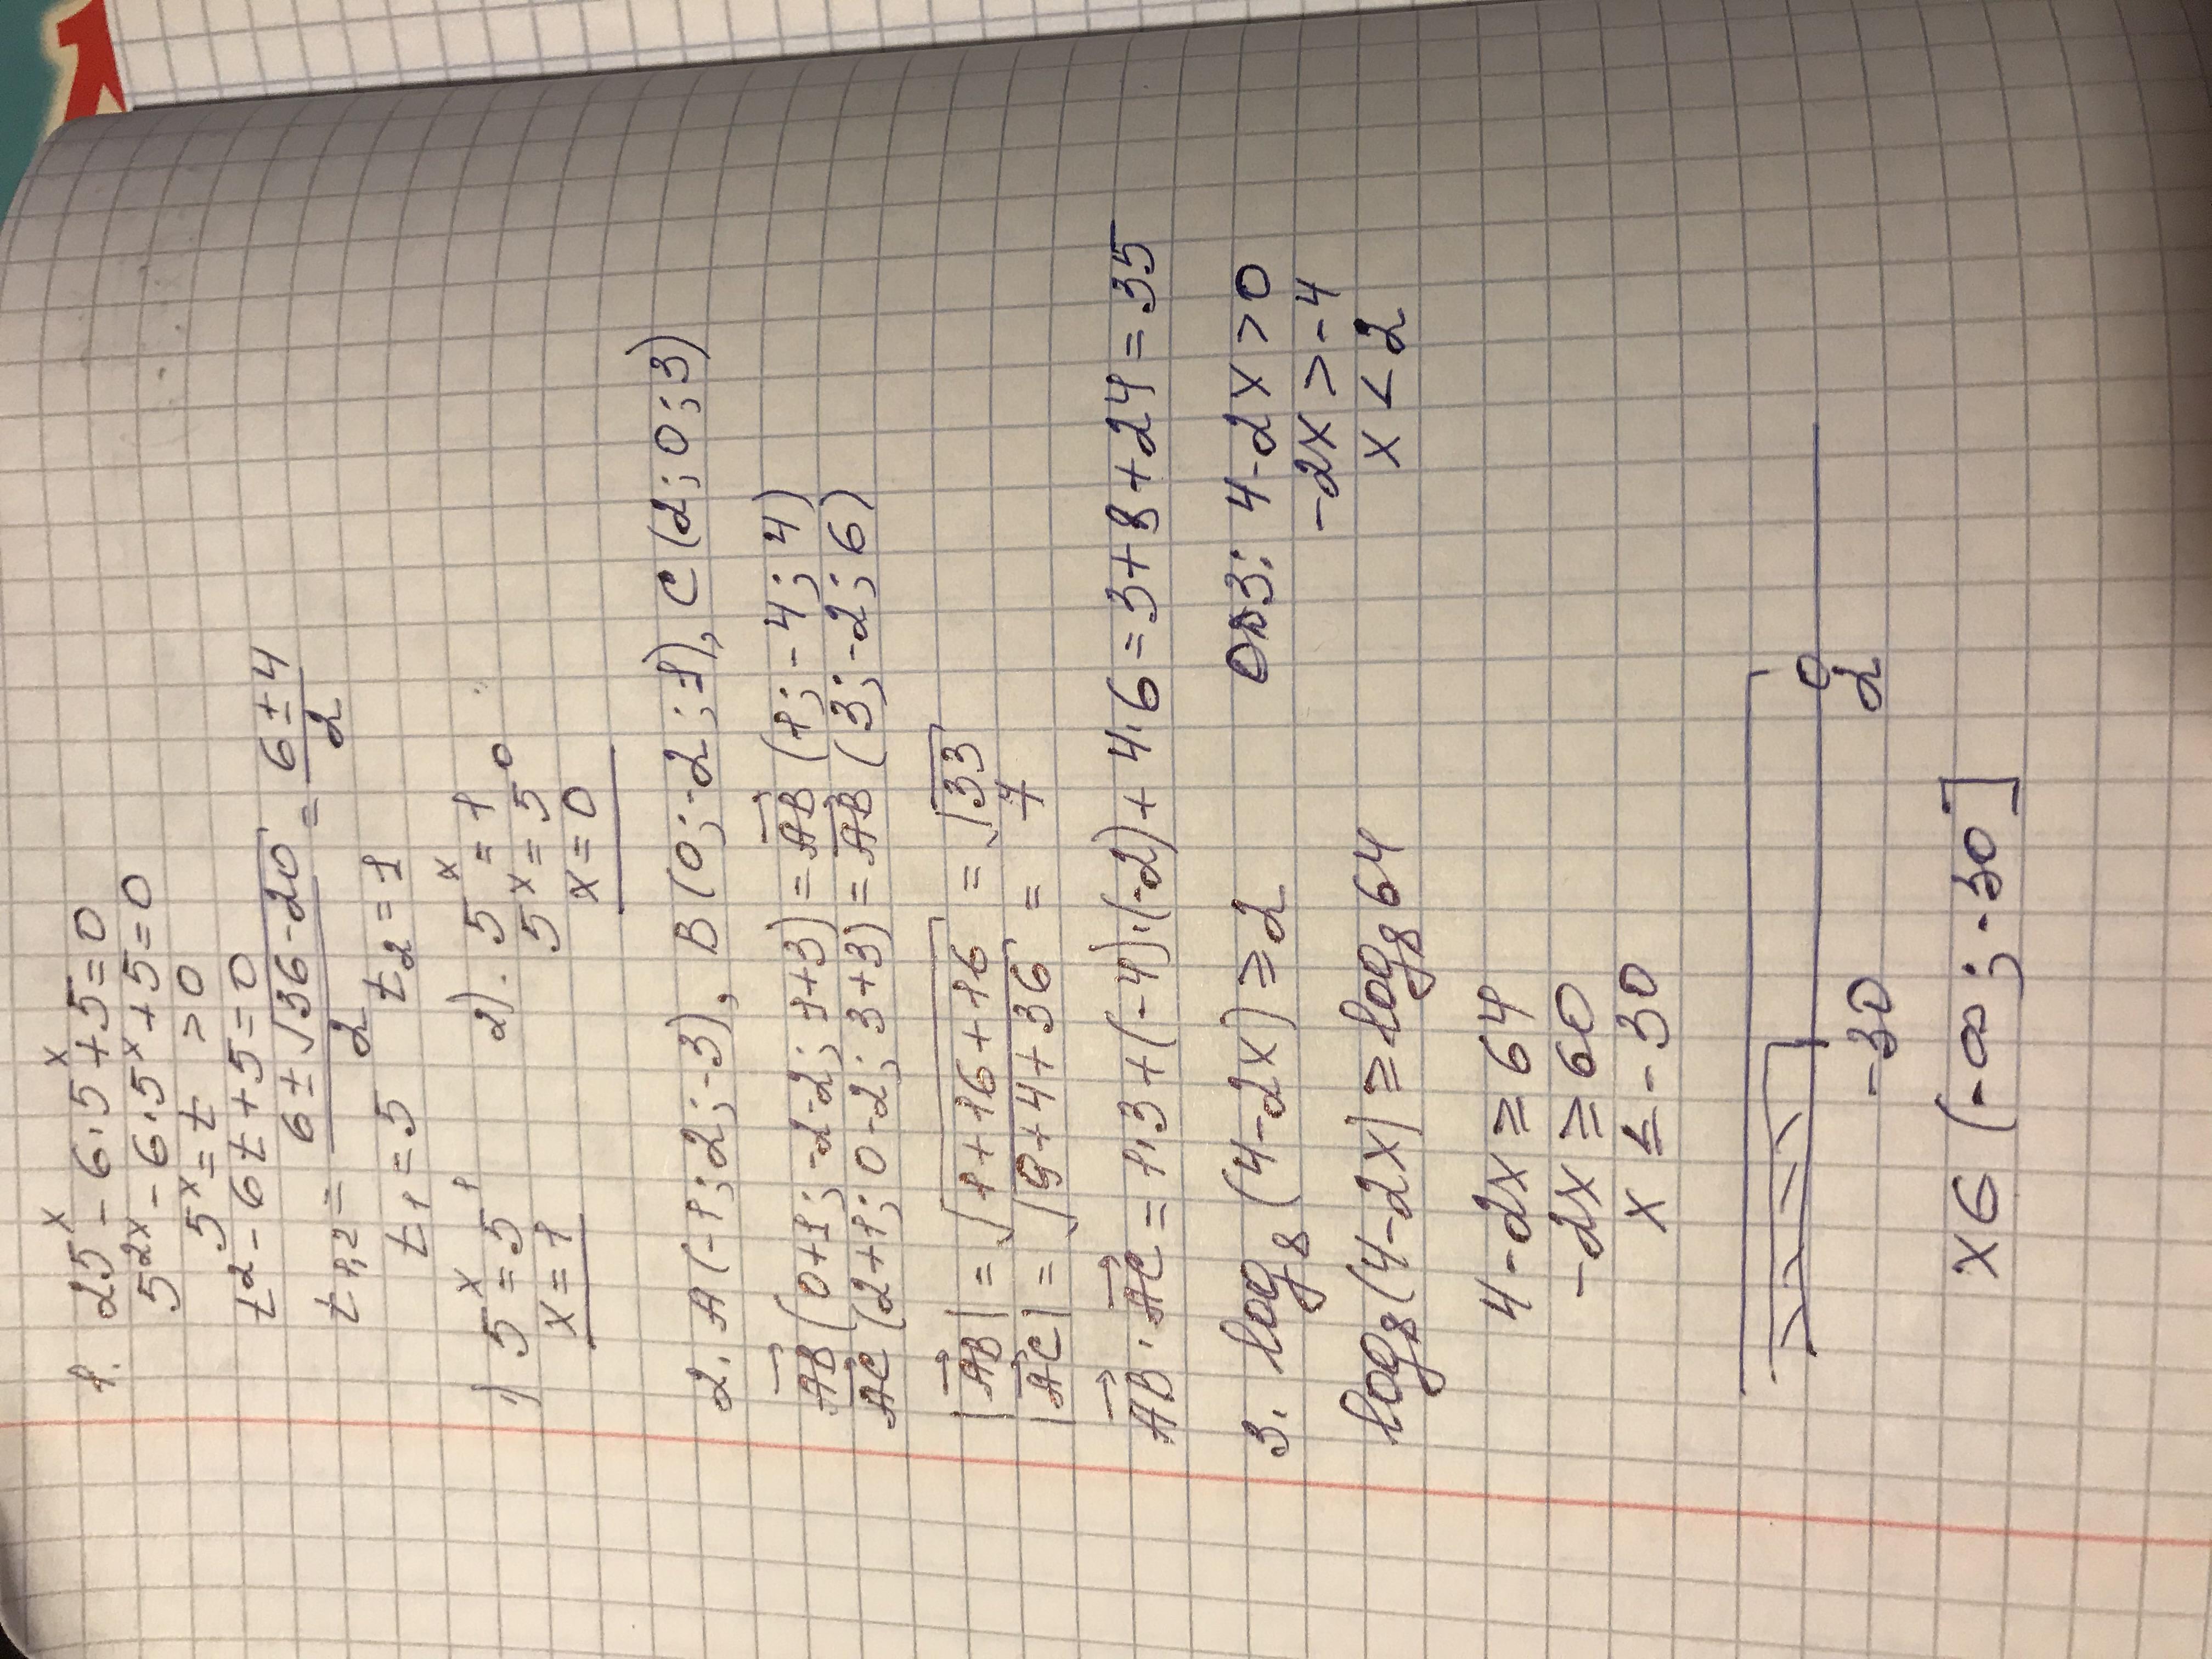 1. 25^x - 6·5^x + 5 = 0
5^2x - 6·5^x + 5 = 0
5^x = t > 0
t^2 - 6t + 5 = 0
t1,2 = (6 ± √36-20)/2 = (6 ± 4)/2
t1 = 5 t2 = 1
1) 5^x = 5^1 2). 5^x = 1
x = 1 5^x = 5^0
x = 0
2. A(-1; 2; -3), B(0; -2; 1), C(2; 0; 3)
AB(0+1; -2-2; 1+3) = AB(1; -4; 4)
AC(2+1; 0-2; 3+3) = AB(3; -2; 6)
|AB| = √1+16+16 = √33
|AC| = √9+4+36 = 7
AB · AC = 1·3+(-4)·(-2)+4·6=3+8+24=35
3. log8(4-2x) ≥ 2 ОДЗ: 4-2x>0
-2x>-4
log8(4-2x) ≥ log8 64 x<2
4-2x ≥ 64
-2x ≥ 60
x ≤ -30
-30 2
x ∈ (-∞; -30]